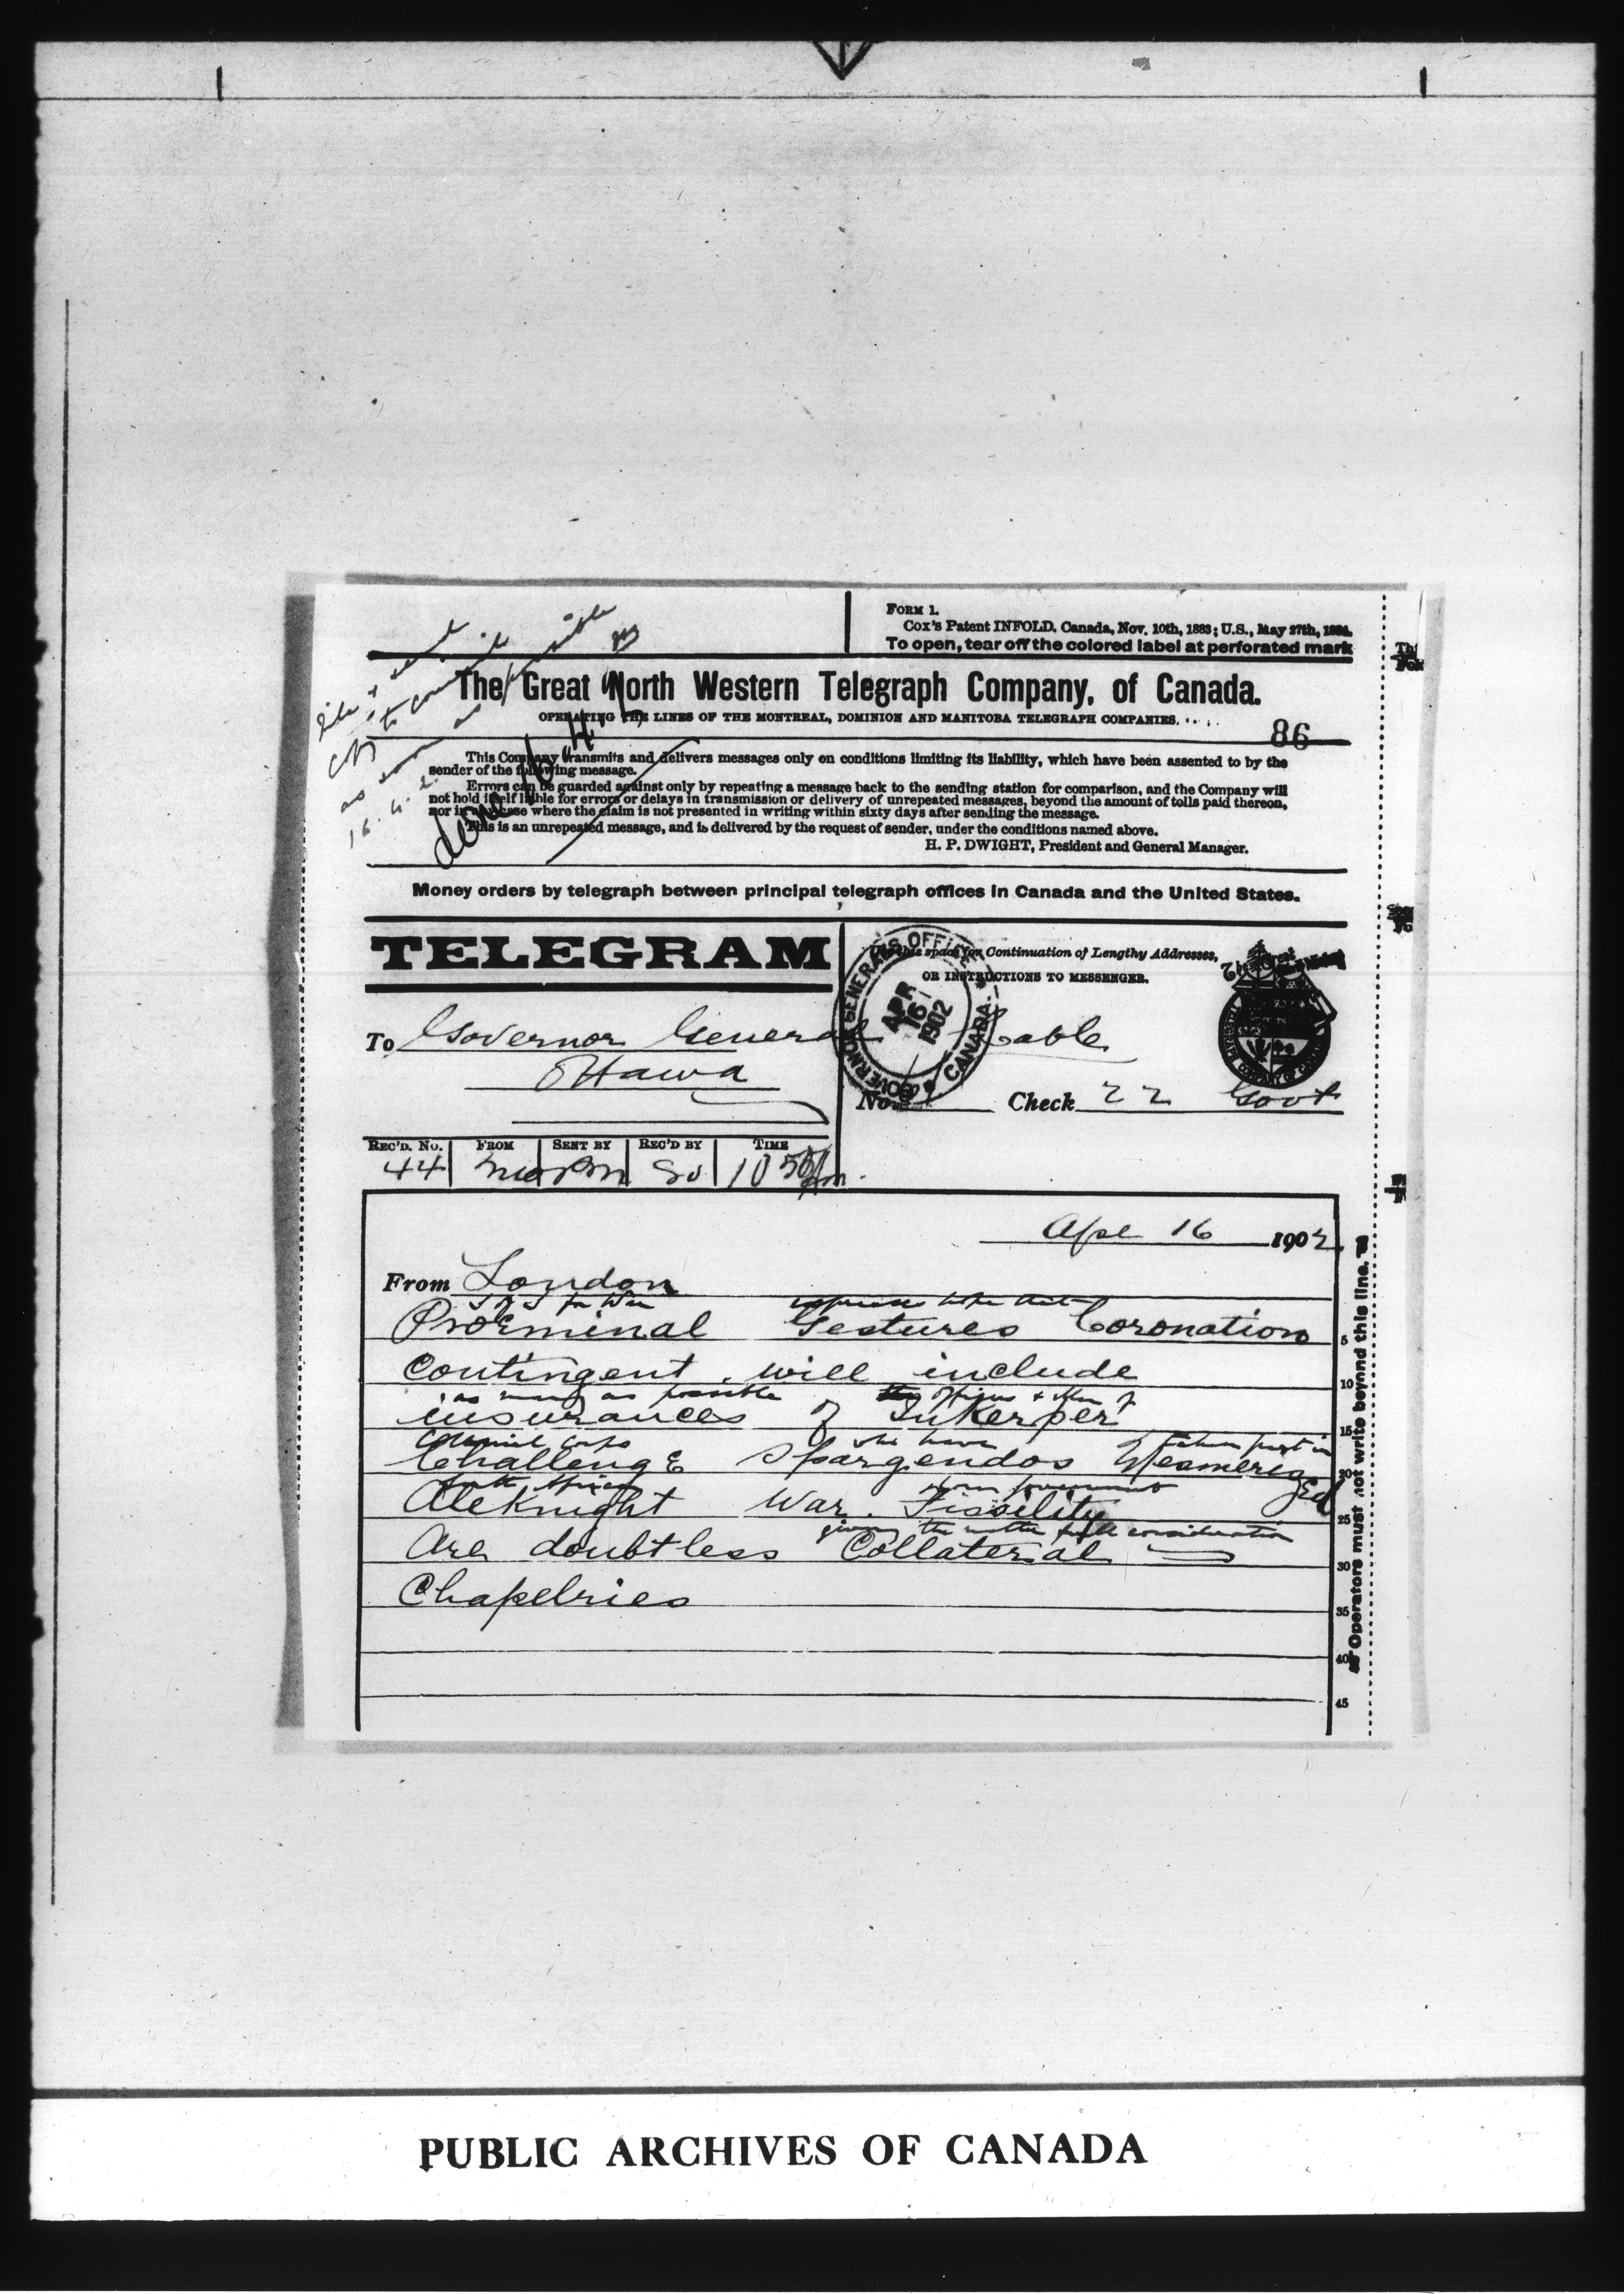 FORM 1.
Cox's Patent INFOLD, Canada, Nov. 10th, 1883; U.S., May 27th,
To open, tear off the colored label at perforated mark
as possible
The Great North Western Telegraph Company, of Canada.
OPERATING THE LINES OF THE MONTREAL, DOMINION AND MANITOBA TELEGRAPH COMPANIES.
86
This Company transmits and delivers messages only on conditions limiting its liability, which have been assented to by the
sender of the following message.
Errors can be guarded against only by repeating a message back to the sending station for comparison, and the Company will
not hold itself liable for errors or delays in transmission or delivery of unrepeated messages, beyond the amount of tolls paid thereon,
nor in any case where the claim is not presented in writing within sixty days after sending the message.
This is an unrepeated message, and is delivered by the request of sender, under the conditions named above.
H. P. DWIGHT, President and General Manager.
16.4.2.
done
Money orders by telegraph between principal telegraph offices in Canada and the United States.
TELEGRAM
space for Continuation of Lengthy Addresses,
OR INSTRUCTIONS TO MESSENGER.
GOVERNOR GENERAL'S OFFICE
APR 16 1902
CANADA
To Governor General Cable
Ottawa
No. Check 22 Govt
REC'D. No. FROM SENT BY REC'D BY TIME
44 10 55
Apl 16 1902
From London
S of S for War expresses hope that
Proeminal Gestures Coronation
5
contingent will include
10
as many as possible officers & men of
insurances of Inkerper
15
Colonial Corps who have taken part in
Challenge Spargendos Mesmerized
20
South African Home government
Aleknight War. Fissility
25
giving the matter full consideration
Are doubtless Collaterial
30
Chapelries
35
40
45
Operators must not write beyond this line.
PUBLIC ARCHIVES OF CANADA